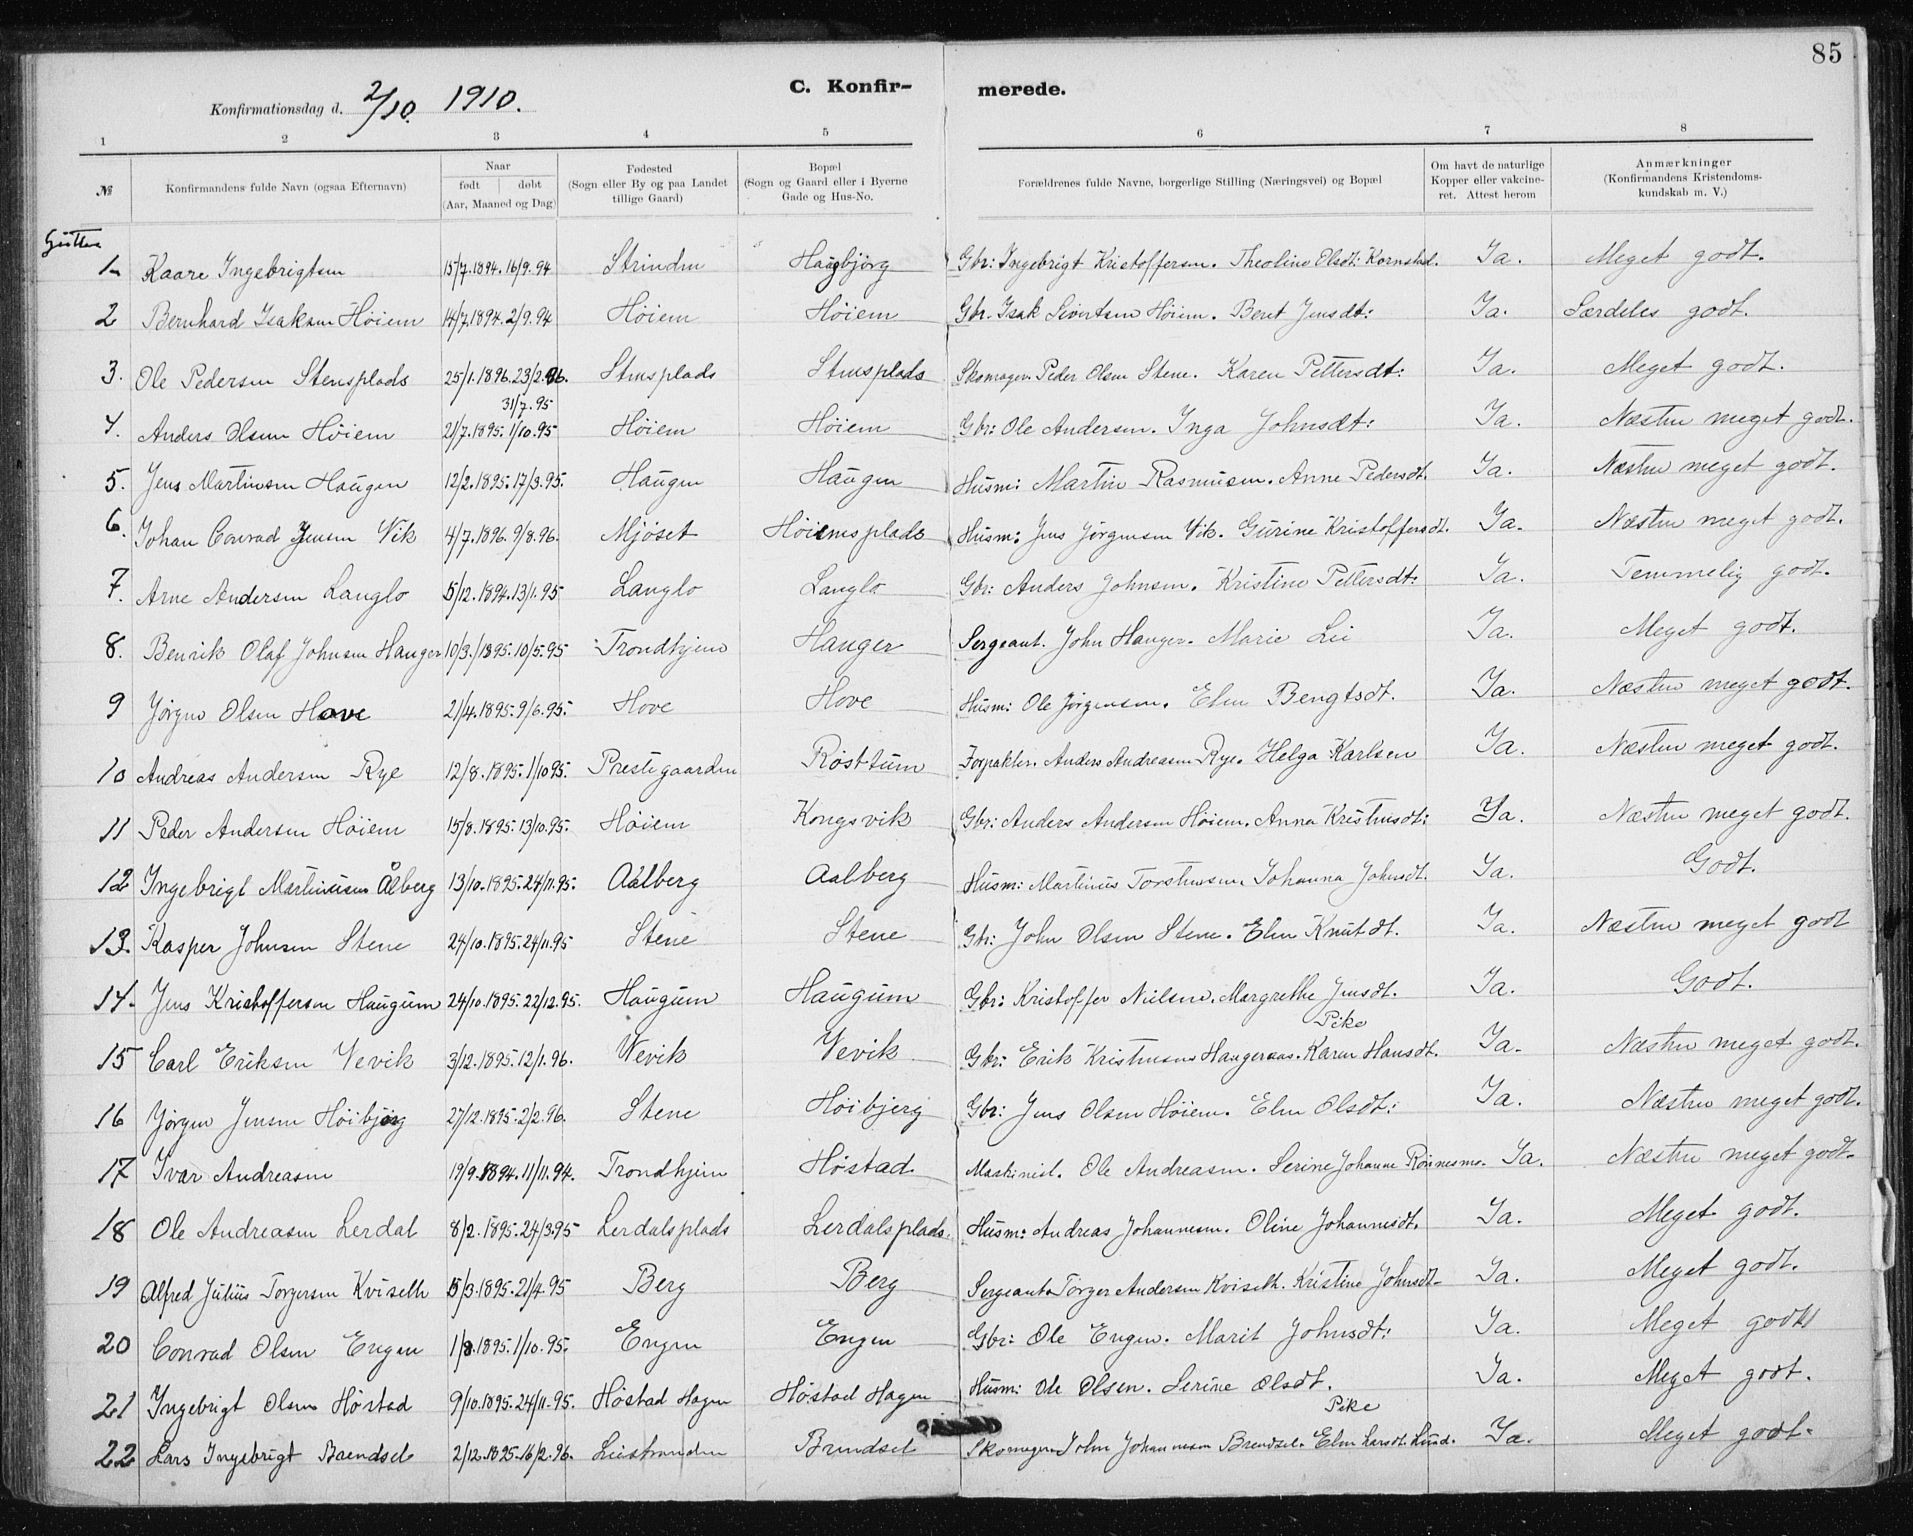 85
C. Konfir- merede.
Konfirmationsdag d. 2/10. 1910.
1 2 3 4 5 6 7 8
№ Konfirmandens fulde Navn (ogsaa Efternavn) Naar født døbt (Aar, Maaned og Dag) Fødested (Sogn eller By og paa Landet tillige Gaard) Bopæl (Sogn og Gaard eller i Byerne Gade og Hus-No. Forældrenes fulde Navne, borgerlige Stilling (Næringsvei) og Bopæl Om havt de naturlige Kopper eller vakcineret. Attest herom Anmærkninger (Konfirmandens Kristendomskundskab m. V.)
Gutter
1 Kaare Ingebrigtsen 15/7.1894. 16/9.94 Strinden Haugbjörg Gbr: Ingebrigt Kristoffersen. Theoline Olsdt: Kornstad. Ja. Meget godt.
2 Bernhard Isaksen Höiem 14/7.1894. 2/9.94 Höiem Höiem Gbr. Isak Sivertsen Höiem. Beret Jensdt: Ja. Særdeles godt.
3. Ole Pedersen Stensplads 25/1.1896. 23/2.96. Stensplads Stensplads Skomager. Peder Olsen Stene. Karen Pettersdt: Ja. Meget godt.
31/7.95
4. Anders Olsen Höiem 21/7.1895. 1/10.95 Höiem Höiem Gbr: Ole Andersen. Inga Johnsdt: Ja. Næsten meget godt.
5. Jens Martinsen Haugen 12/2.1895. 17/3.95. Haugen Haugen Husm: Martin Rasmusen. Anne Pedersdt. Ja. Næsten meget godt.
6. Johan Conrad Jensen Vik 4/7.1896. 9/8.96. Mjöset Höiemsplads Husm: Jens Jörgensen Vik. Gurine Kristoffersdt. Ja. Næsten meget godt.
7. Arne Andersen Langlo 5/12.1894. 13/1.95 Langlo Langlo Gbr: Anders Johnsen. Kristine Pettersdt: Ja. Temmelig godt.
8. Benrik Olaf Johnsen Hanger 10/3.1895. 10/5.95 Trondhjem Hanger Sergeant. John Hanger. Marie Lie Ja. Meget godt.
9 Jörgen Olsen Hove 21/4.1895. 9/6.95. Hove Hove Husm: Ole Jörgensen. Elen Bengtsdt. Ja. Næsten meget godt.
10 Andreas Andersen Rye 12/8.1895. 1/10.95. Prestegaarden Röstum Forpakter. Anders Andreasen Rye. Helga Karlsen Ja. Næsten meget godt.
11 Peder Andersen Höiem 15/8.1895. 13/10.95. Höiem Kongsvik Gbr: Anders Andersen Höiem. Anna Kristensdt: Ja. Næsten meget godt.
12 Ingebrigt Martinusen Ålberg 13/10.1895. 24/11.95. Aalberg Aalberg Husm: Martinus Torstensen. Johanna Johnsdt. Ja. Godt.
13. Kasper Johnsen Stene 24/10.1895. 24/11.95 Stene Stene Gbr: John Olsen Stene. Elen Knutdt. Ja. Næsten meget godt
14. Jens Kristoffersen Haugum 24/10.1895. 22/12.95. Haugum Haugum Gbr: Kristoffer Nielsen. Margrethe Jensdt. Ja. Godt.
Pike
15 Carl Eriksen Vevik 3/12.1895. 12/1.96. Vevik Vevik Gbr: Erik Kristensen Haugeraas. Karen Hansdt. Ja. Næsten meget godt.
16 Jörgen Jensen Höibjörg 27/12.1895. 2/2.96. Stene Höibjerg Gbr: Jens Olsen Höiem. Elen Olsdt: Ja. Næsten meget godt.
17 Ivar Andreasen 19/9.1894. 11/11.94. Trondhjem Höstad Maskinist. Ole Andreasen. Serine Johanne Rönnesmo. Ja. Næsten meget godt.
18 Ole Andreasen Lerdal 8/2.1895. 24/3.95 Lerdalsplads Lerdalsplads. Husm: Andreas Johannesen. Oline Johannesdt. Ja. Meget godt.
19 Alfred Julius Torgersen Kviseth 5/3.1895. 21/4.95 Berg Berg Sergeant. Torger Andersen Kviseth. Kristine Johnsdt. Ja. Meget godt.
20 Conrad Olsen Engen 1/8.1895. 1/10.95. Engen Engen Gbr: Ole Engen. Marit Johnsdt: Ja. Meget godt
21 Ingebrigt Olsen Höstad 9/10.1895. 24/11.95. Höstad Hagen Höstad Hagen Husm: Ole Olsen. Serine Olsdt. Ja. Meget godt.
Pike
22 Lars Ingebrigt Brendset 2/12.1895. 16/2.96. Leistranden Brendset Skomager. John Johannesen Brendset. Elen Larsdt. Lund. Ja. Meget godt.